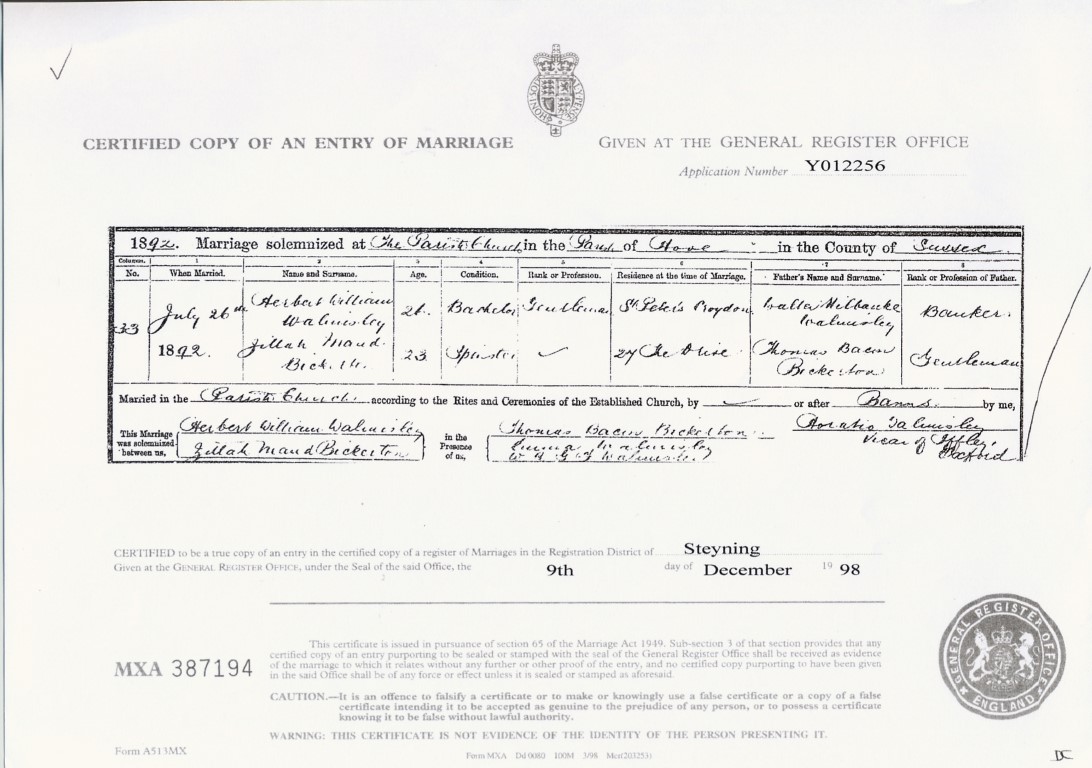 CERTIFIED COPY OF AN ENTRY OF MARRIAGE
GIVEN AT THE GENERAL REGISTER OFFICE
Application Number Y012256
1892. Marriage solemnized at The Parish Church in the Parish of Hove in the County of Sussex
Columns. 1 2 3 4 5 6 7 8
No. When Married. Name and Surname. Age. Condition. Rank or Profession. Residence at the time of Marriage. Father's Name and Surname. Rank or Profession of Father.
33 July 26th 1892. Herbert William Walmisley 26. Bachelor Gentleman St Peter's Croydon Walter Milbanke Walmisley Banker.
Zillah Maud Bickerton 23 Spinster 27 The Drive Thomas Bacon Bickerton Gentleman
Married in the Parish Church according to the Rites and Ceremonies of the Established Church, by or after Banns by me,
This Marriage was solemnized between us,
Herbert William Walmisley
Zillah Maud Bickerton
in the Presence of us,
Thomas Bacon Bickerton
Emma Walmisley
Walmisley
Horatio Walmisley
Vicar of Iffley,
Oxford
CERTIFIED to be a true copy of an entry in the certified copy of a register of Marriages in the Registration District of Steyning
Given at the GENERAL REGISTER OFFICE, under the Seal of the said Office, the 9th day of December 19 98
This certificate is issued in pursuance of section 65 of the Marriage Act 1949. Sub-section 3 of that section provides that any
certified copy of an entry purporting to be sealed or stamped with the seal of the General Register Office shall be received as evidence
of the marriage to which it relates without any further or other proof of the entry, and no certified copy purporting to have been given
in the said Office shall be of any force or effect unless it is sealed or stamped as aforesaid.
MXA 387194
CAUTION.—It is an offence to falsify a certificate or to make or knowingly use a false certificate or a copy of a false
certificate intending it to be accepted as genuine to the prejudice of any person, or to possess a certificate
knowing it to be false without lawful authority.
WARNING: THIS CERTIFICATE IS NOT EVIDENCE OF THE IDENTITY OF THE PERSON PRESENTING IT.
GENERAL REGISTER OFFICE
ENGLAND
Form A513MX
Form MXA Dd 0080 100M 3/98 Mcr(203253)
DC